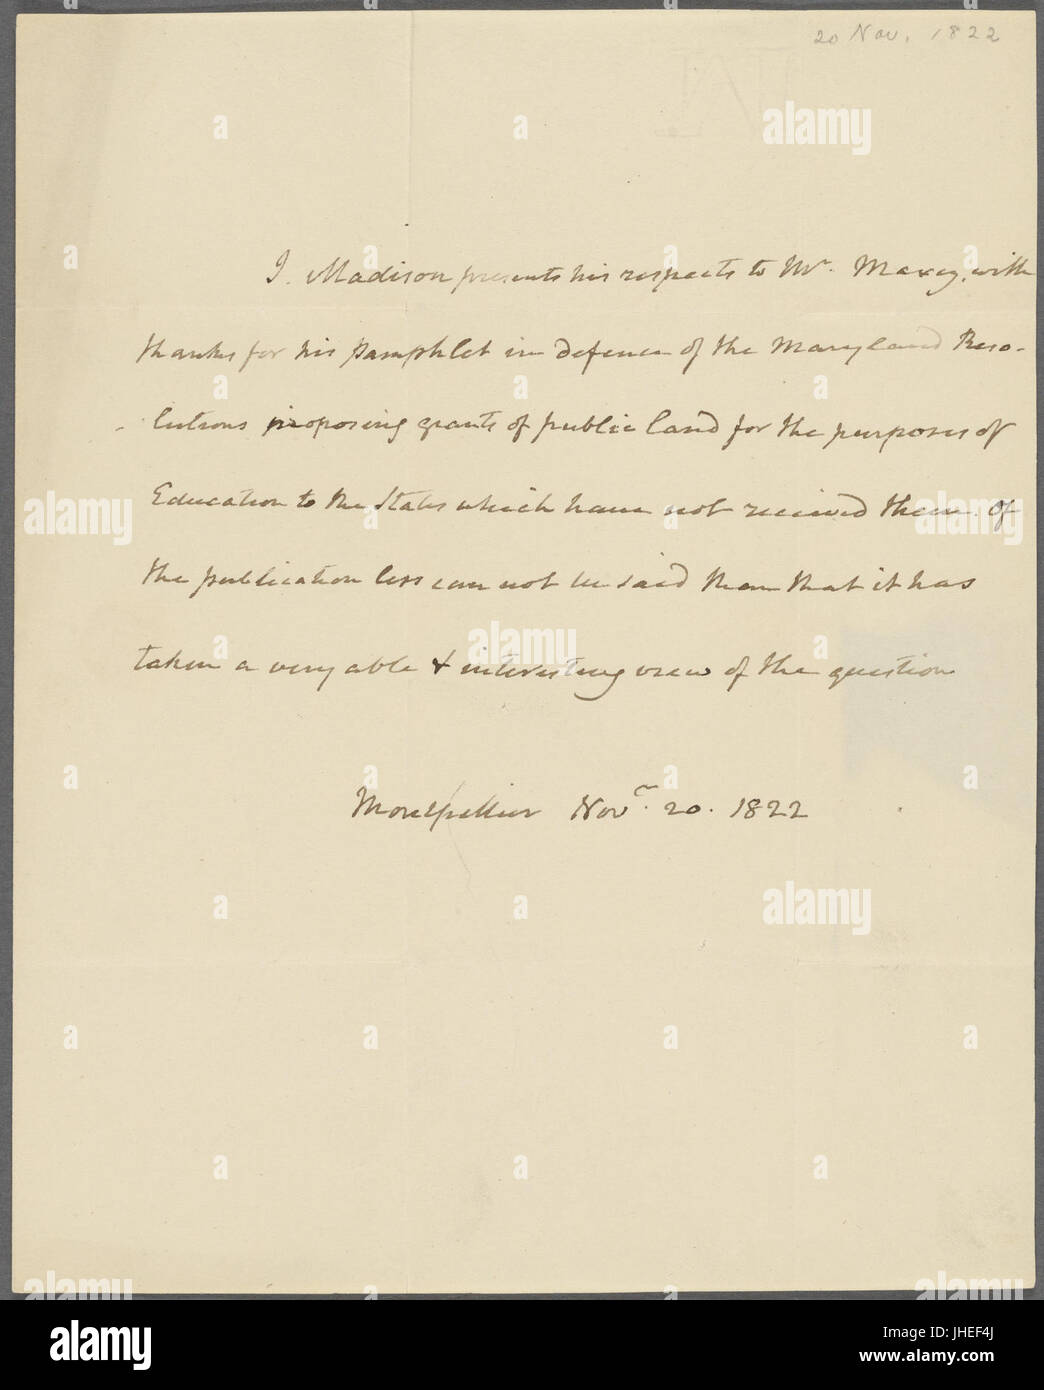 20 Nov. 1822
J. Madison presents his respects to Mr. Maxcy, with
thanks for his pamphlet in defence of the Maryland Reso-
lutions proposing grants of public land for the purposes of
Education to the States which have not received them. Of
the publication less can not be said than that it has
taken a very able & interesting view of the question
Montpellier Novr. 20. 1822
alamy
Image ID: JHEF4J
www.alamy.com